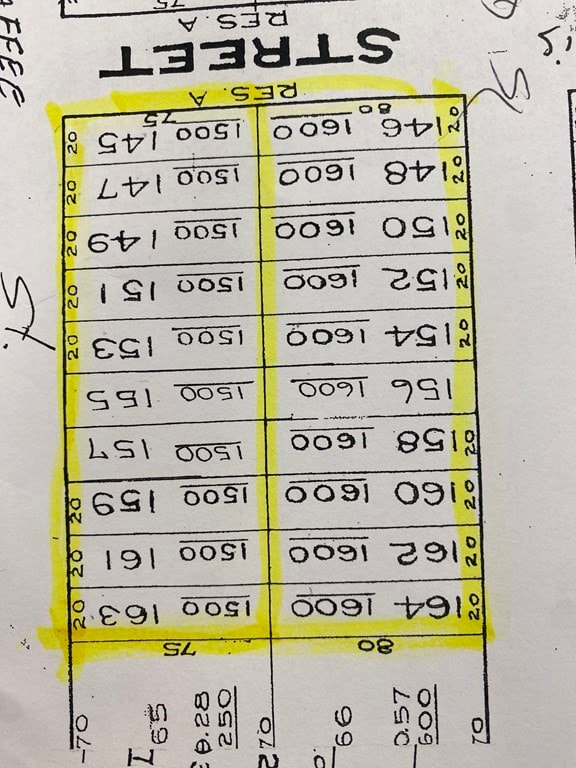 70
0.57
600
66
70
250
65
70
80 75
20 164 1600 1500 163 20
20 162 1600 1500 161 20
20 160 1600 1500 159 20
20 158 1600 1500 157
156 1600 1500 155
20 154 1600 1500 153 20
20 152 1600 1500 151 20
20 150 1600 1500 149 20
20 148 1600 1500 147 20
20 146 1600 1500 145 20
80 75
RES. A
STREET
RES. A
75